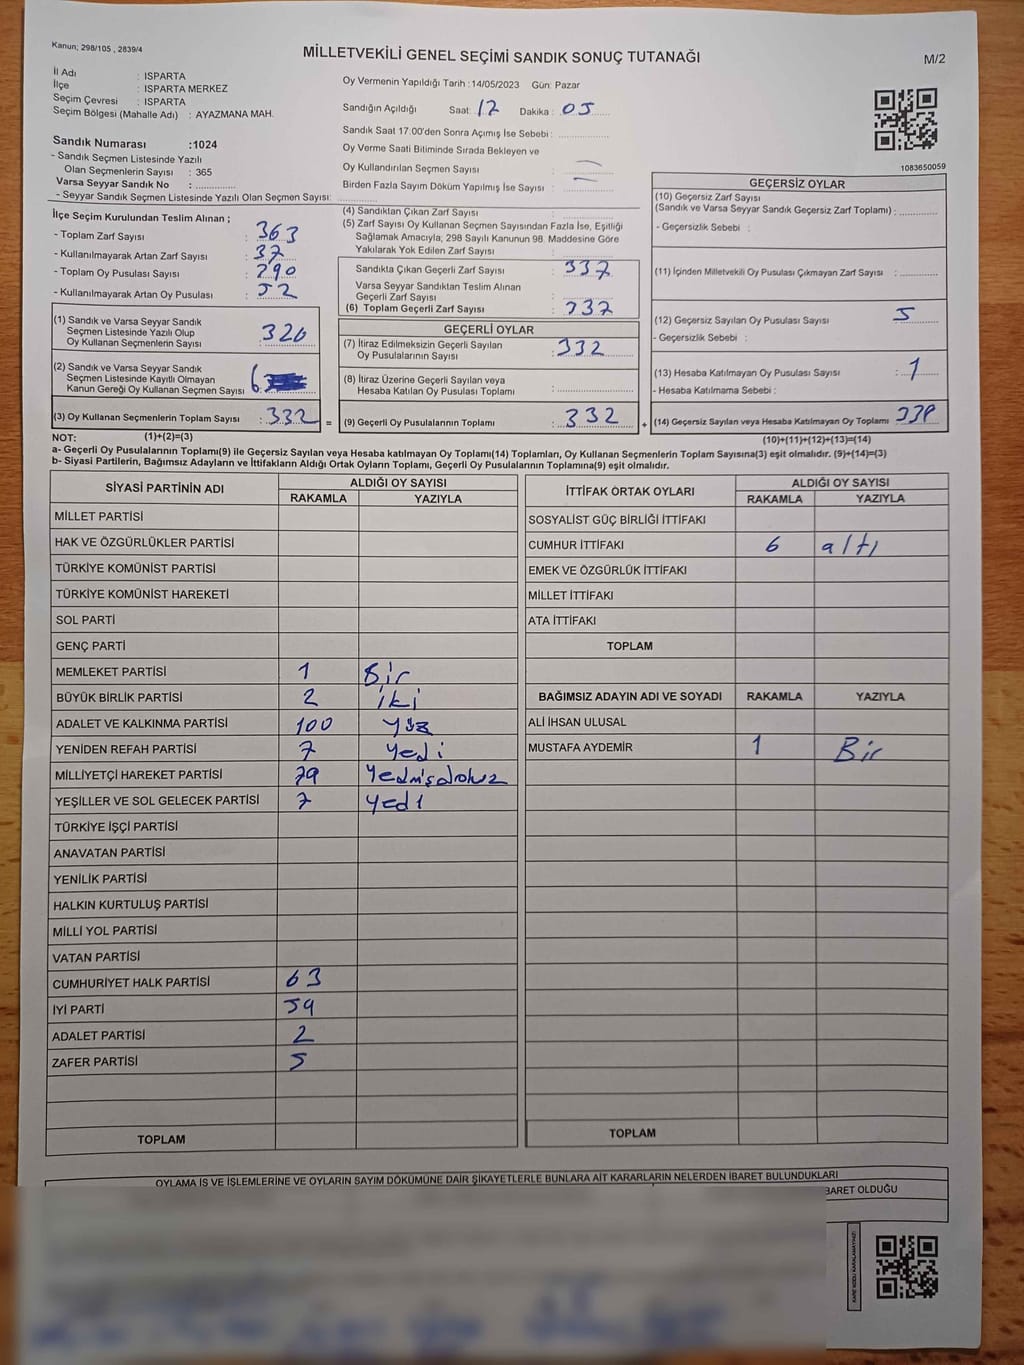 Kanun; 298/105 , 2839/4
MİLLETVEKİLİ GENEL SEÇİMİ SANDIK SONUÇ TUTANAĞI
M/2
İl Adı : ISPARTA
İlçe : ISPARTA MERKEZ
Seçim Çevresi : ISPARTA
Seçim Bölgesi (Mahalle Adı) : AYAZMANA MAH.
Sandık Numarası :1024
- Sandık Seçmen Listesinde Yazılı
Olan Seçmenlerin Sayısı : 365
Varsa Seyyar Sandık No :
- Seyyar Sandık Seçmen Listesinde Yazılı Olan Seçmen Sayısı:
Oy Vermenin Yapıldığı Tarih : 14/05/2023 Gün: Pazar
Sandığın Açıldığı Saat: 17 Dakika : 05
Sandık Saat 17.00'den Sonra Açımış İse Sebebi :
Oy Verme Saati Bitiminde Sırada Bekleyen ve
Oy Kullandırılan Seçmen Sayısı :
Birden Fazla Sayım Döküm Yapılmış İse Sayısı :
1083650059
İlçe Seçim Kurulundan Teslim Alınan ;
- Toplam Zarf Sayısı : 363
- Kullanılmayarak Artan Zarf Sayısı : 37
- Toplam Oy Pusulası Sayısı : 290
- Kullanılmayarak Artan Oy Pusulası : 52
(1) Sandık ve Varsa Seyyar Sandık
Seçmen Listesinde Yazılı Olup
Oy Kullanan Seçmenlerin Sayısı 326
(2) Sandık ve Varsa Seyyar Sandık
Seçmen Listesinde Kayıtlı Olmayan
Kanun Gereği Oy Kullanan Seçmen Sayısı 6
(3) Oy Kullanan Seçmenlerin Toplam Sayısı : 332 =
(4) Sandıktan Çıkan Zarf Sayısı
(5) Zarf Sayısı Oy Kullanan Seçmen Sayısından Fazla İse, Eşitliği
Sağlamak Amacıyla; 298 Sayılı Kanunun 98. Maddesine Göre
Yakılarak Yok Edilen Zarf Sayısı :
Sandıkta Çıkan Geçerli Zarf Sayısı : 337
Varsa Seyyar Sandıktan Teslim Alınan
Geçerli Zarf Sayısı :
(6) Toplam Geçerli Zarf Sayısı : 337
GEÇERLİ OYLAR
(7) İtiraz Edilmeksizin Geçerli Sayılan
Oy Pusulalarının Sayısı : 332
(8) İtiraz Üzerine Geçerli Sayılan veya
Hesaba Katılan Oy Pusulası Toplamı :
(9) Geçerli Oy Pusulalarının Toplamı : 332 +
GEÇERSİZ OYLAR
(10) Geçersiz Zarf Sayısı
(Sandık ve Varsa Seyyar Sandık Geçersiz Zarf Toplamı) :
- Geçersizlik Sebebi :
(11) İçinden Milletvekili Oy Pusulası Çıkmayan Zarf Sayısı :
(12) Geçersiz Sayılan Oy Pusulası Sayısı : 5
- Geçersizlik Sebebi :
(13) Hesaba Katılmayan Oy Pusulası Sayısı : 1
- Hesaba Katılmama Sebebi :
(14) Geçersiz Sayılan veya Hesaba Katılmayan Oy Toplamı 338
NOT: (1)+(2)=(3)
(10)+(11)+(12)+(13)=(14)
a- Geçerli Oy Pusulalarının Toplamı(9) ile Geçersiz Sayılan veya Hesaba katılmayan Oy Toplamı(14) Toplamları, Oy Kullanan Seçmenlerin Toplam Sayısına(3) eşit olmalıdır. (9)+(14)=(3)
b- Siyasi Partilerin, Bağımsız Adayların ve İttifakların Aldığı Ortak Oyların Toplamı, Geçerli Oy Pusulalarının Toplamına(9) eşit olmalıdır.
SİYASİ PARTİNİN ADI ALDIĞI OY SAYISI
RAKAMLA YAZIYLA
MİLLET PARTİSİ
HAK VE ÖZGÜRLÜKLER PARTİSİ
TÜRKİYE KOMÜNİST PARTİSİ
TÜRKİYE KOMÜNİST HAREKETİ
SOL PARTİ
GENÇ PARTİ
MEMLEKET PARTİSİ 1 Bir
BÜYÜK BİRLİK PARTİSİ 2 iki
ADALET VE KALKINMA PARTİSİ 100 yüz
YENİDEN REFAH PARTİSİ 7 yedi
MİLLİYETÇİ HAREKET PARTİSİ 79 Yedmişdokuz
YEŞİLLER VE SOL GELECEK PARTİSİ 7 yedi
TÜRKİYE İŞÇİ PARTİSİ
ANAVATAN PARTİSİ
YENİLİK PARTİSİ
HALKIN KURTULUŞ PARTİSİ
MİLLİ YOL PARTİSİ
VATAN PARTİSİ
CUMHURİYET HALK PARTİSİ 63
İYİ PARTİ 59
ADALET PARTİSİ 2
ZAFER PARTİSİ 5
TOPLAM
İTTİFAK ORTAK OYLARI ALDIĞI OY SAYISI
RAKAMLA YAZIYLA
SOSYALİST GÜÇ BİRLİĞİ İTTİFAKI
CUMHUR İTTİFAKI 6 altı
EMEK VE ÖZGÜRLÜK İTTİFAKI
MİLLET İTTİFAKI
ATA İTTİFAKI
TOPLAM
BAĞIMSIZ ADAYIN ADI VE SOYADI RAKAMLA YAZIYLA
ALİ İHSAN ULUSAL
MUSTAFA AYDEMİR 1 Bir
TOPLAM
OYLAMA İŞ VE İŞLEMLERİNE VE OYLARIN SAYIM DÖKÜMÜNE DAİR ŞİKAYETLERLE BUNLARA AİT KARARLARIN NELERDEN İBARET BULUNDUKLARI
BARET OLDUĞU